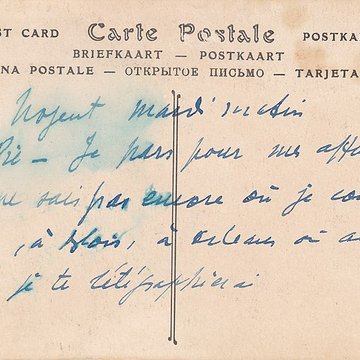 ST CARD Carte Postale POSTKA
BRIEFKAART — POSTKAART
NA POSTALE — ОТКРЫТОЕ ПИСЬМО — TARJETA
Nogent mardi matin
— Je pars pour mes affa
ne sais pas encore où je cou
, à Blois, à Orléans ou a
je te télégraphierai